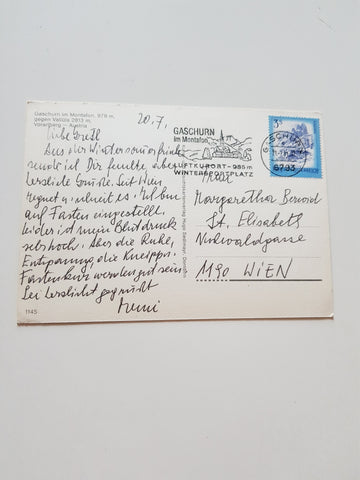 Gaschurn im Montafon, 979 m,
gegen Vallüla 2813 m,
Vorarlberg – Austria
20.7.
Liebe Gretl
Aus der Wintersommerfrische
sende ich Dir
herzliche Grüße. Seit
regnet u. Ich bin
auf Fasten eingestellt.
leider ist mein Blutdruck
sehr hoch. Aber die Ruhe,
Entspannung, die Kneipp u.
Fastenkur werden gut sein
Sei herzlichst gegrüßt
1145
GASCHURN
im Montafon
LUFTKURORT - 985 m
WINTERSPORTPLATZ
6793
Frau
Margaretha
St. Elisabeth
1190 WIEN